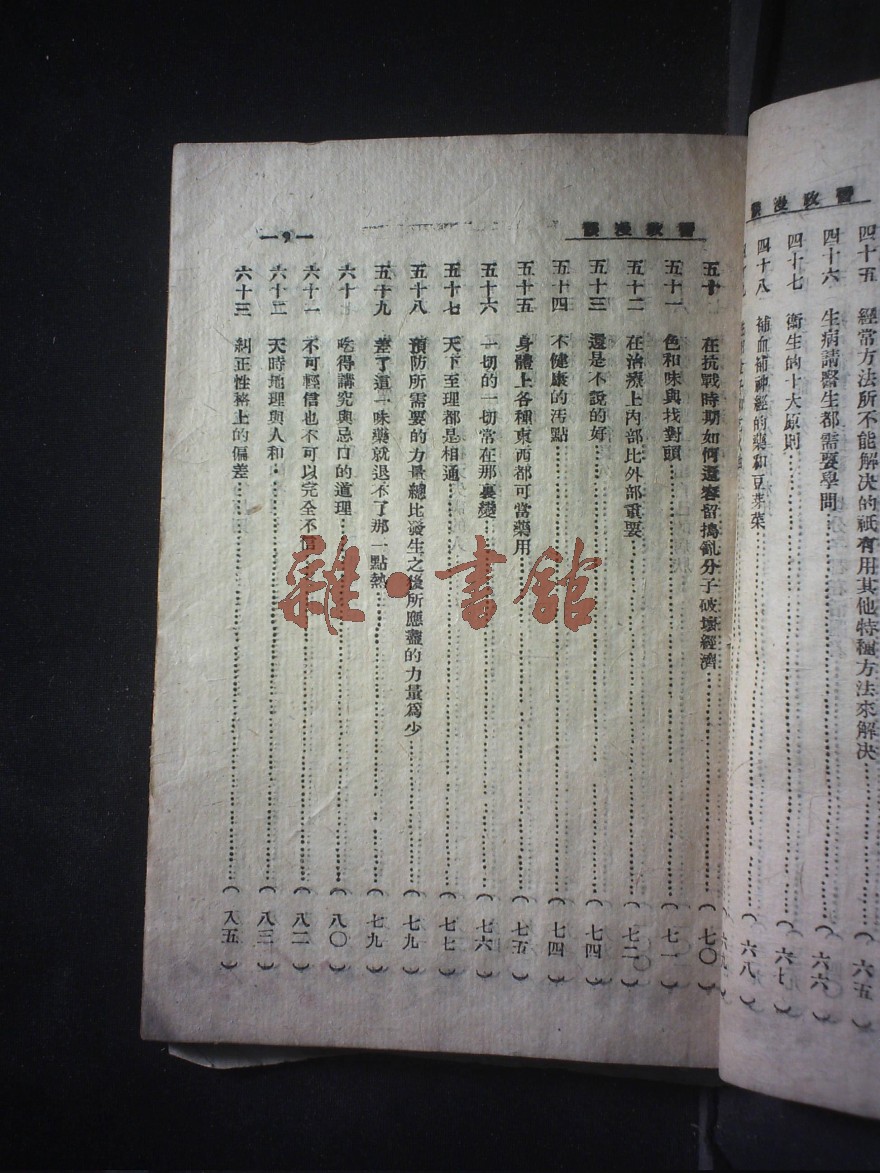 醫政漫談
四十五 經常方法所不能解决的祇有用其他特種方法來解决(六五)
四十六 生病請醫生都需要學問(六六)
四十七 衞生的十大原則(六七)
四十八 補血補神經的藥和豆芽菜(六八)
醫政漫談
五十 在抗戰時期如何還容留搗亂分子破壞經濟(七〇)
五十一 色和味與找對頭(七一)
五十二 在治療上內部比外部重要(七二)
五十三 還是不說的好(七四)
五十四 不健康的汚點(七四)
五十五 身體上各種東西都可當藥用(七五)
五十六 一切的一切常在那裏變(七六)
五十七 天下至理都是相通(七七)
五十八 預防所需要的力量總比發生之後所應盡的力量爲少(七九)
五十九 差了這一味藥就退不了那一點熱(七九)
六十 吃得講究與忌口的道理(八〇)
六十一 不可輕信也不可以完全不信(八二)
六十二 天時地理與人和(八三)
六十三 糾正性格上的偏差(八五)
雜·書館